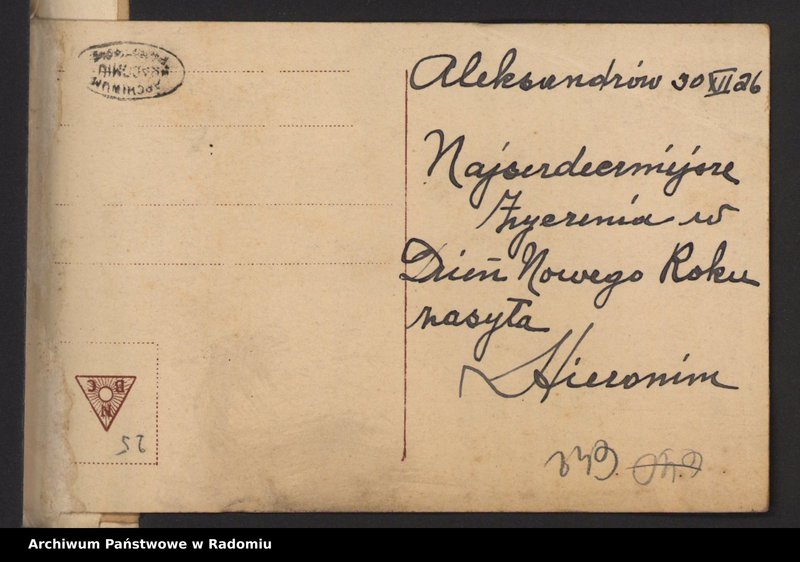 Aleksandrów 30 XII 26
Najserdeczniejsze
życzenia w
Dzień Nowego Roku
zasyła
Hieronim
ARCHIWUM
RADOMIU
N B C
25
Archiwum Państwowe w Radomiu